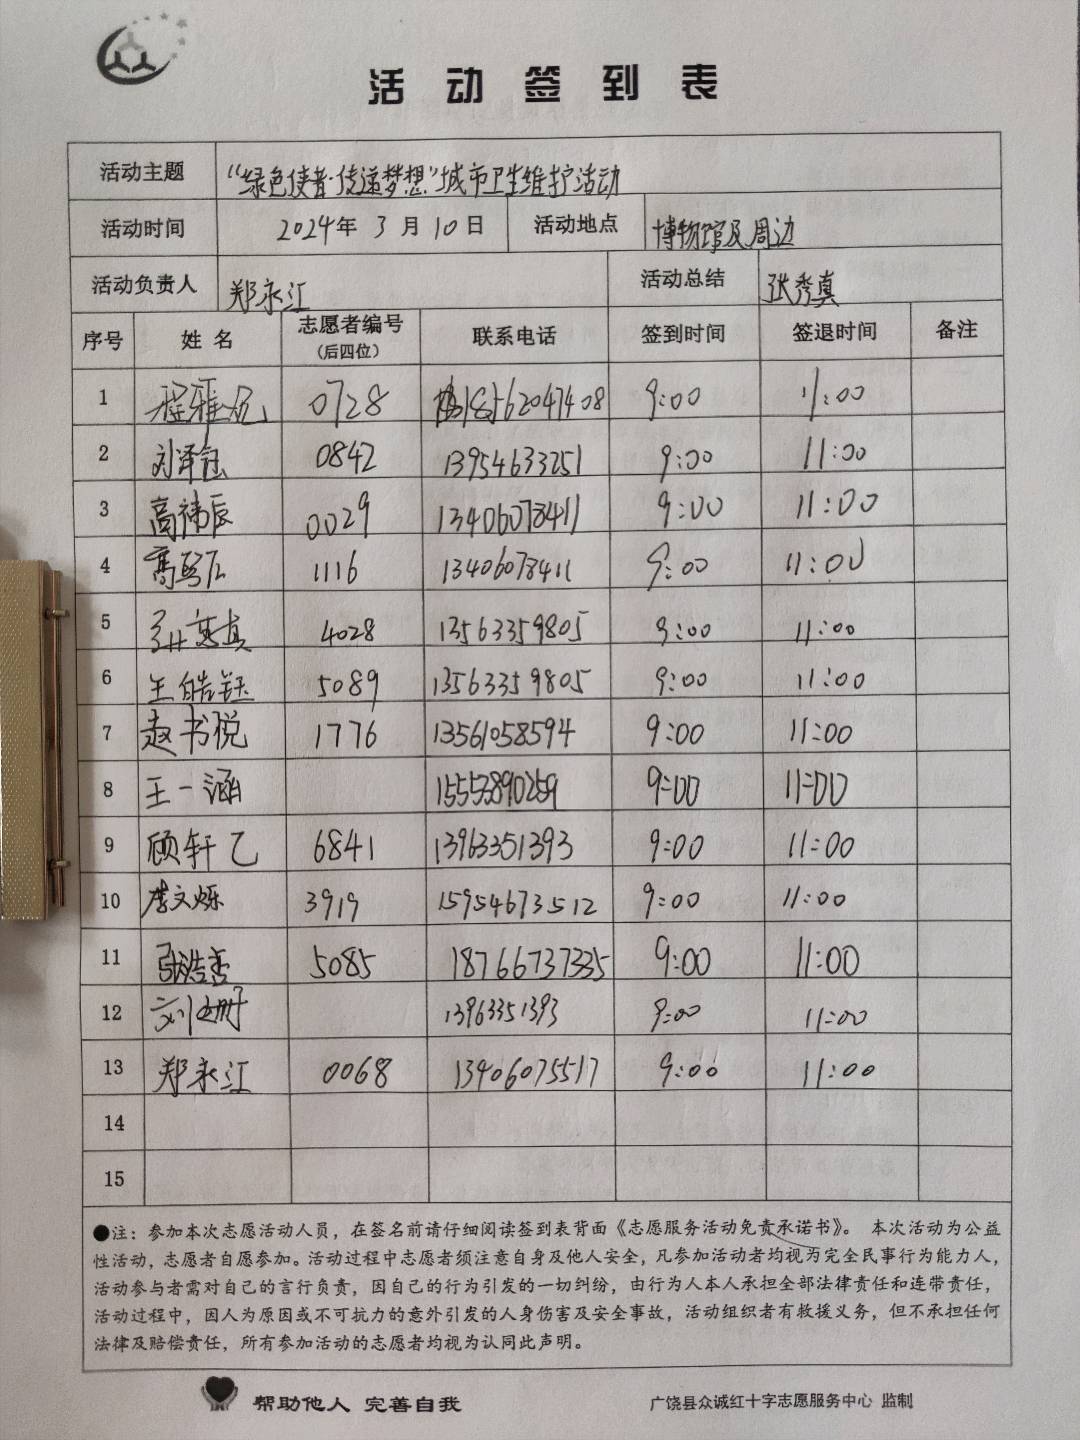 活动签到表
活动主题 “绿色使者·传递梦想”城市卫生维护活动
活动时间 2024年 3月 10日 活动地点 博物馆及周边
活动负责人 郑永江 活动总结 张秀真
序号 姓名 志愿者编号（后四位） 联系电话 签到时间 签退时间 备注
1 程雅 0728 18562047408 9:00 11:00
2 刘泽钰 0842 13954633251 9:00 11:00
3 高祎辰 0029 13406078411 9:00 11:00
4 1116 13406078411 9:00 11:00
5 4028 13563359805 9:00 11:00
6 王皓钰 5089 13563359805 9:00 11:00
7 赵书悦 1776 13561058594 9:00 11:00
8 王一涵 9:00 11:00
9 顾轩乙 6841 13963351393 9:00 11:00
10 李文烁 3919 15954673512 9:00 11:00
11 张浩 5085 18766737335 9:00 11:00
12 刘 13963351393 9:00 11:00
13 郑永江 0068 13406075517 9:00 11:00
14
15
●注：参加本次志愿活动人员，在签名前请仔细阅读签到表背面《志愿服务活动免责承诺书》。 本次活动为公益
性活动，志愿者自愿参加。活动过程中志愿者须注意自身及他人安全，凡参加活动者均视为完全民事行为能力人，
活动参与者需对自己的言行负责，因自己的行为引发的一切纠纷，由行为人本人承担全部法律责任和连带责任，
活动过程中，因人为原因或不可抗力的意外引发的人身伤害及安全事故，活动组织者有救援义务，但不承担任何
法律及赔偿责任，所有参加活动的志愿者均视为认同此声明。
帮助他人 完善自我 广饶县众诚红十字志愿服务中心 监制